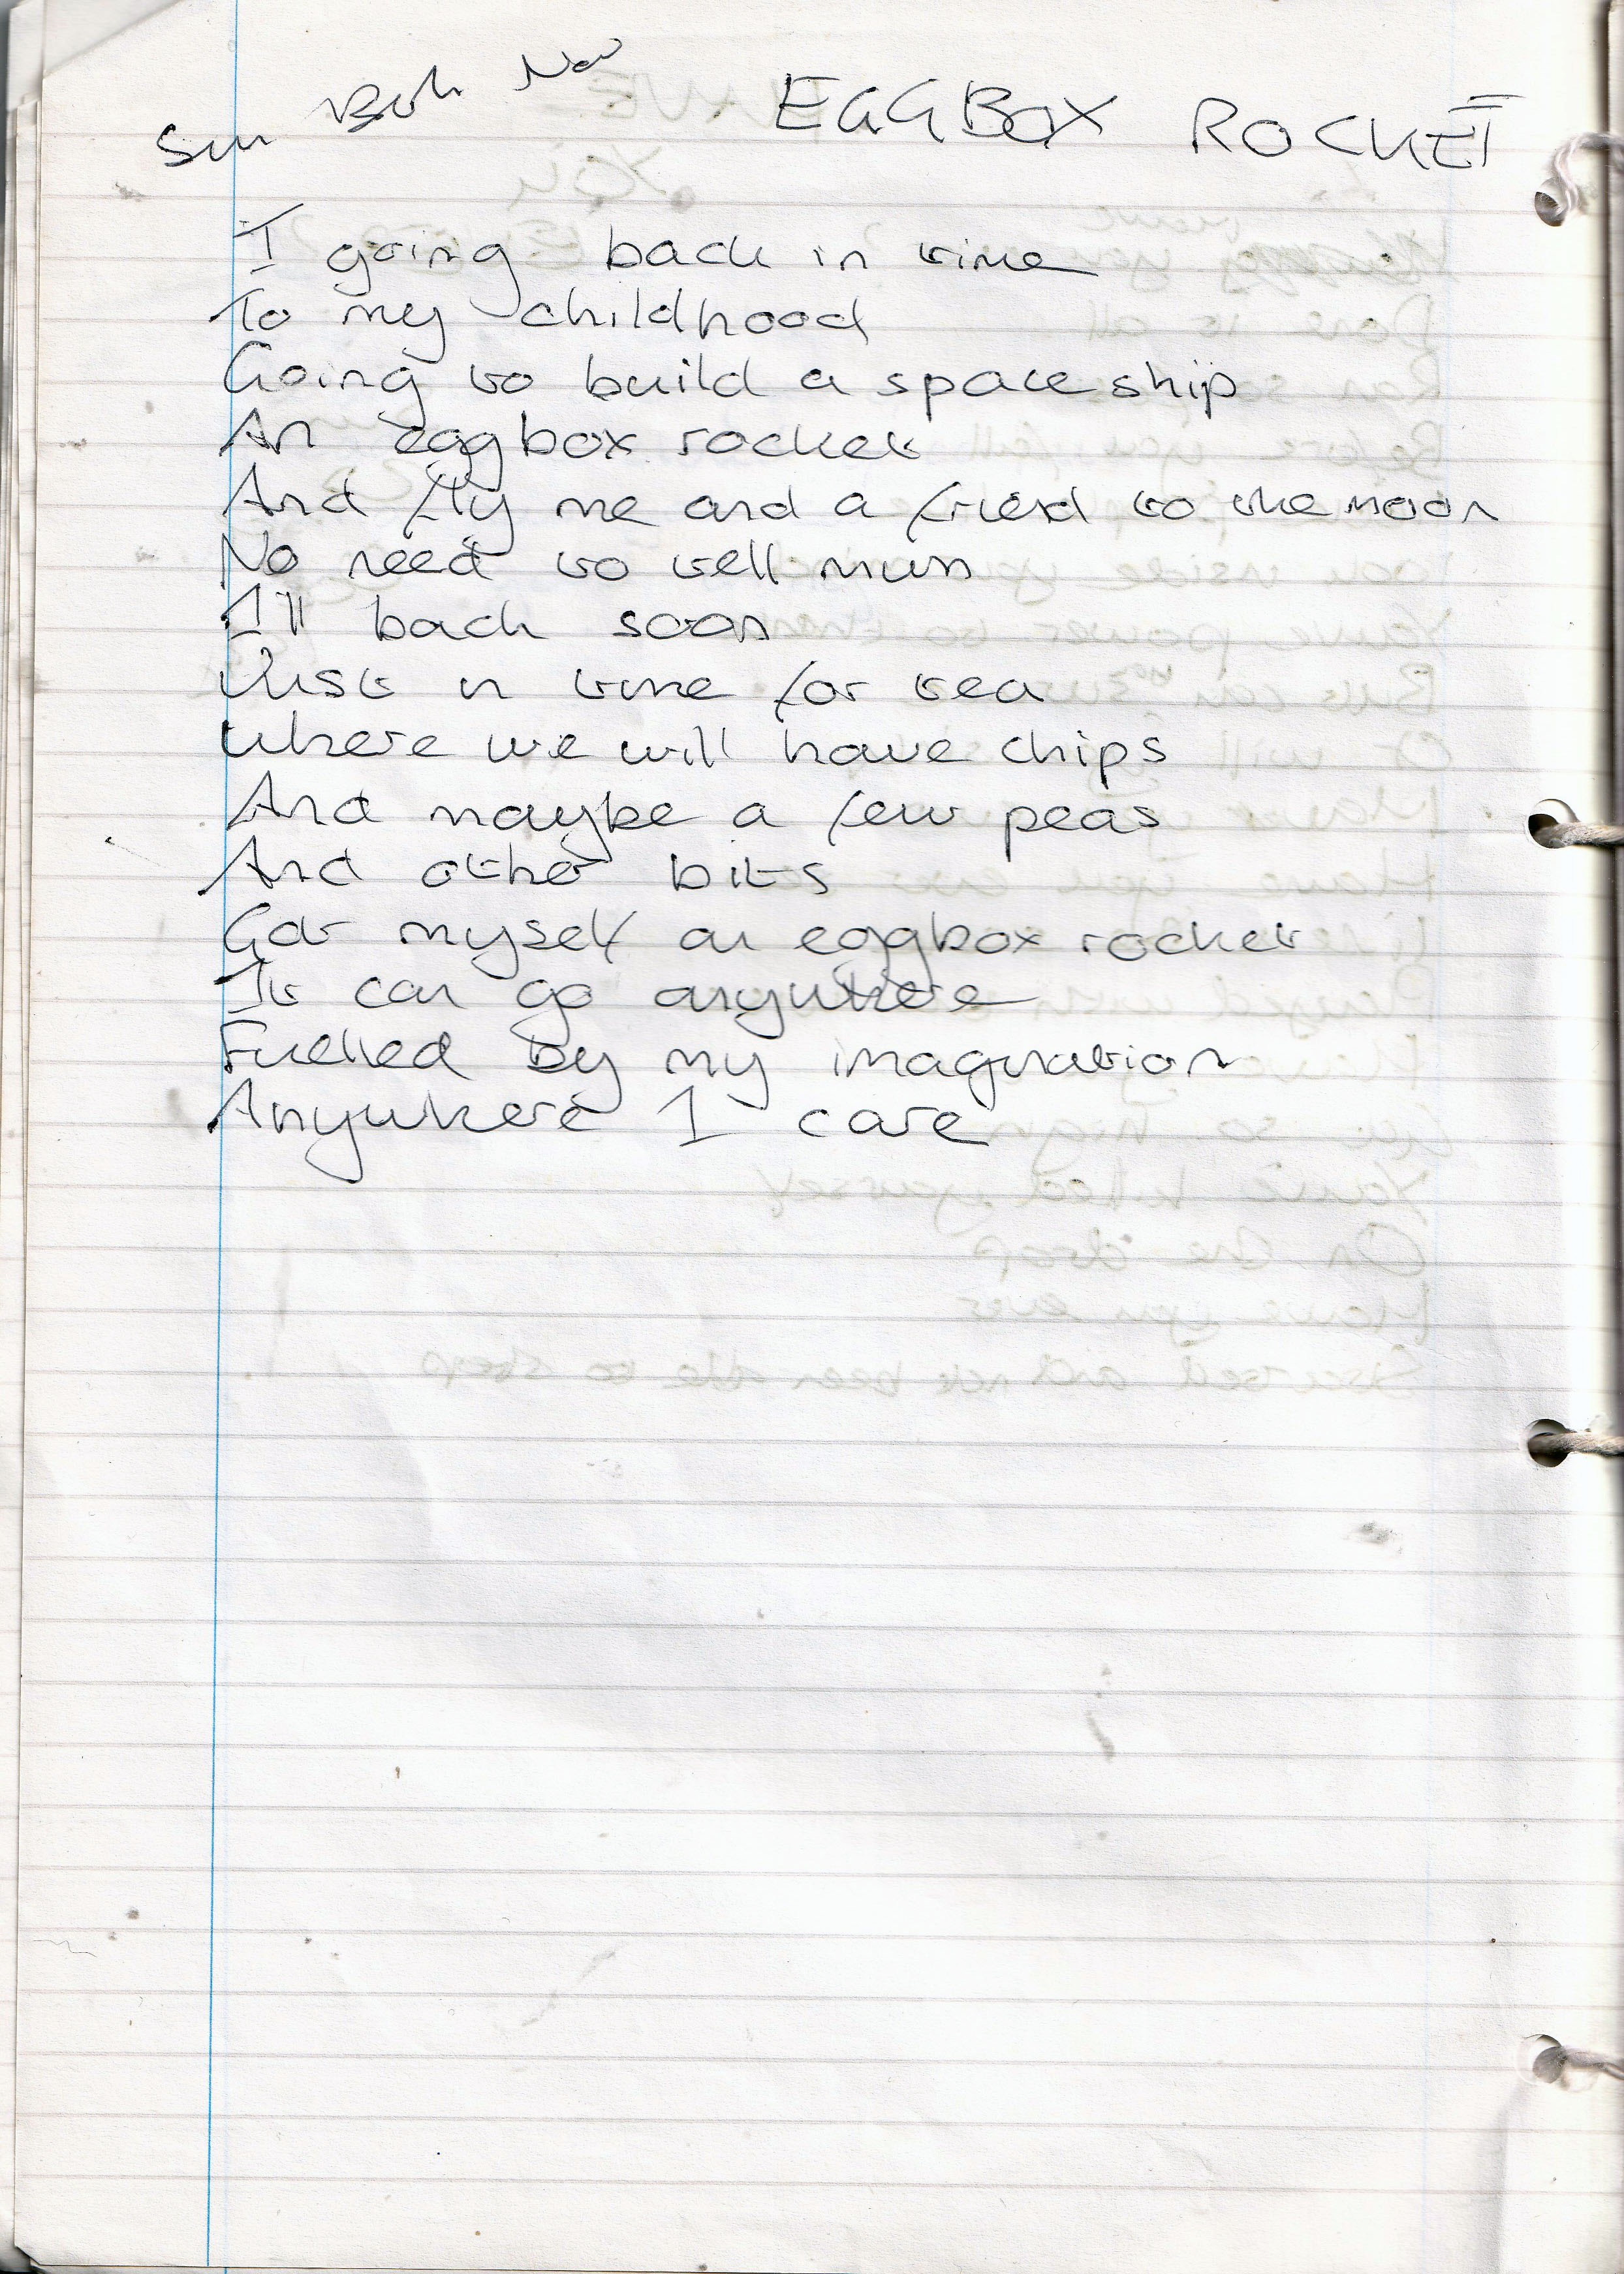 Sun 8th Nov
EGGBOX ROCKET
I going back in time
To my childhood
Going to build a spaceship
An eggbox rocket
And fly me and a friend to the moon
No need to tell mum
I'll back soon
Just in time for tea
Where we will have chips
And maybe a few peas
And other bits
Got myself an eggbox rocket
It can go anywhere
Fuelled by my imagination
Anywhere I care